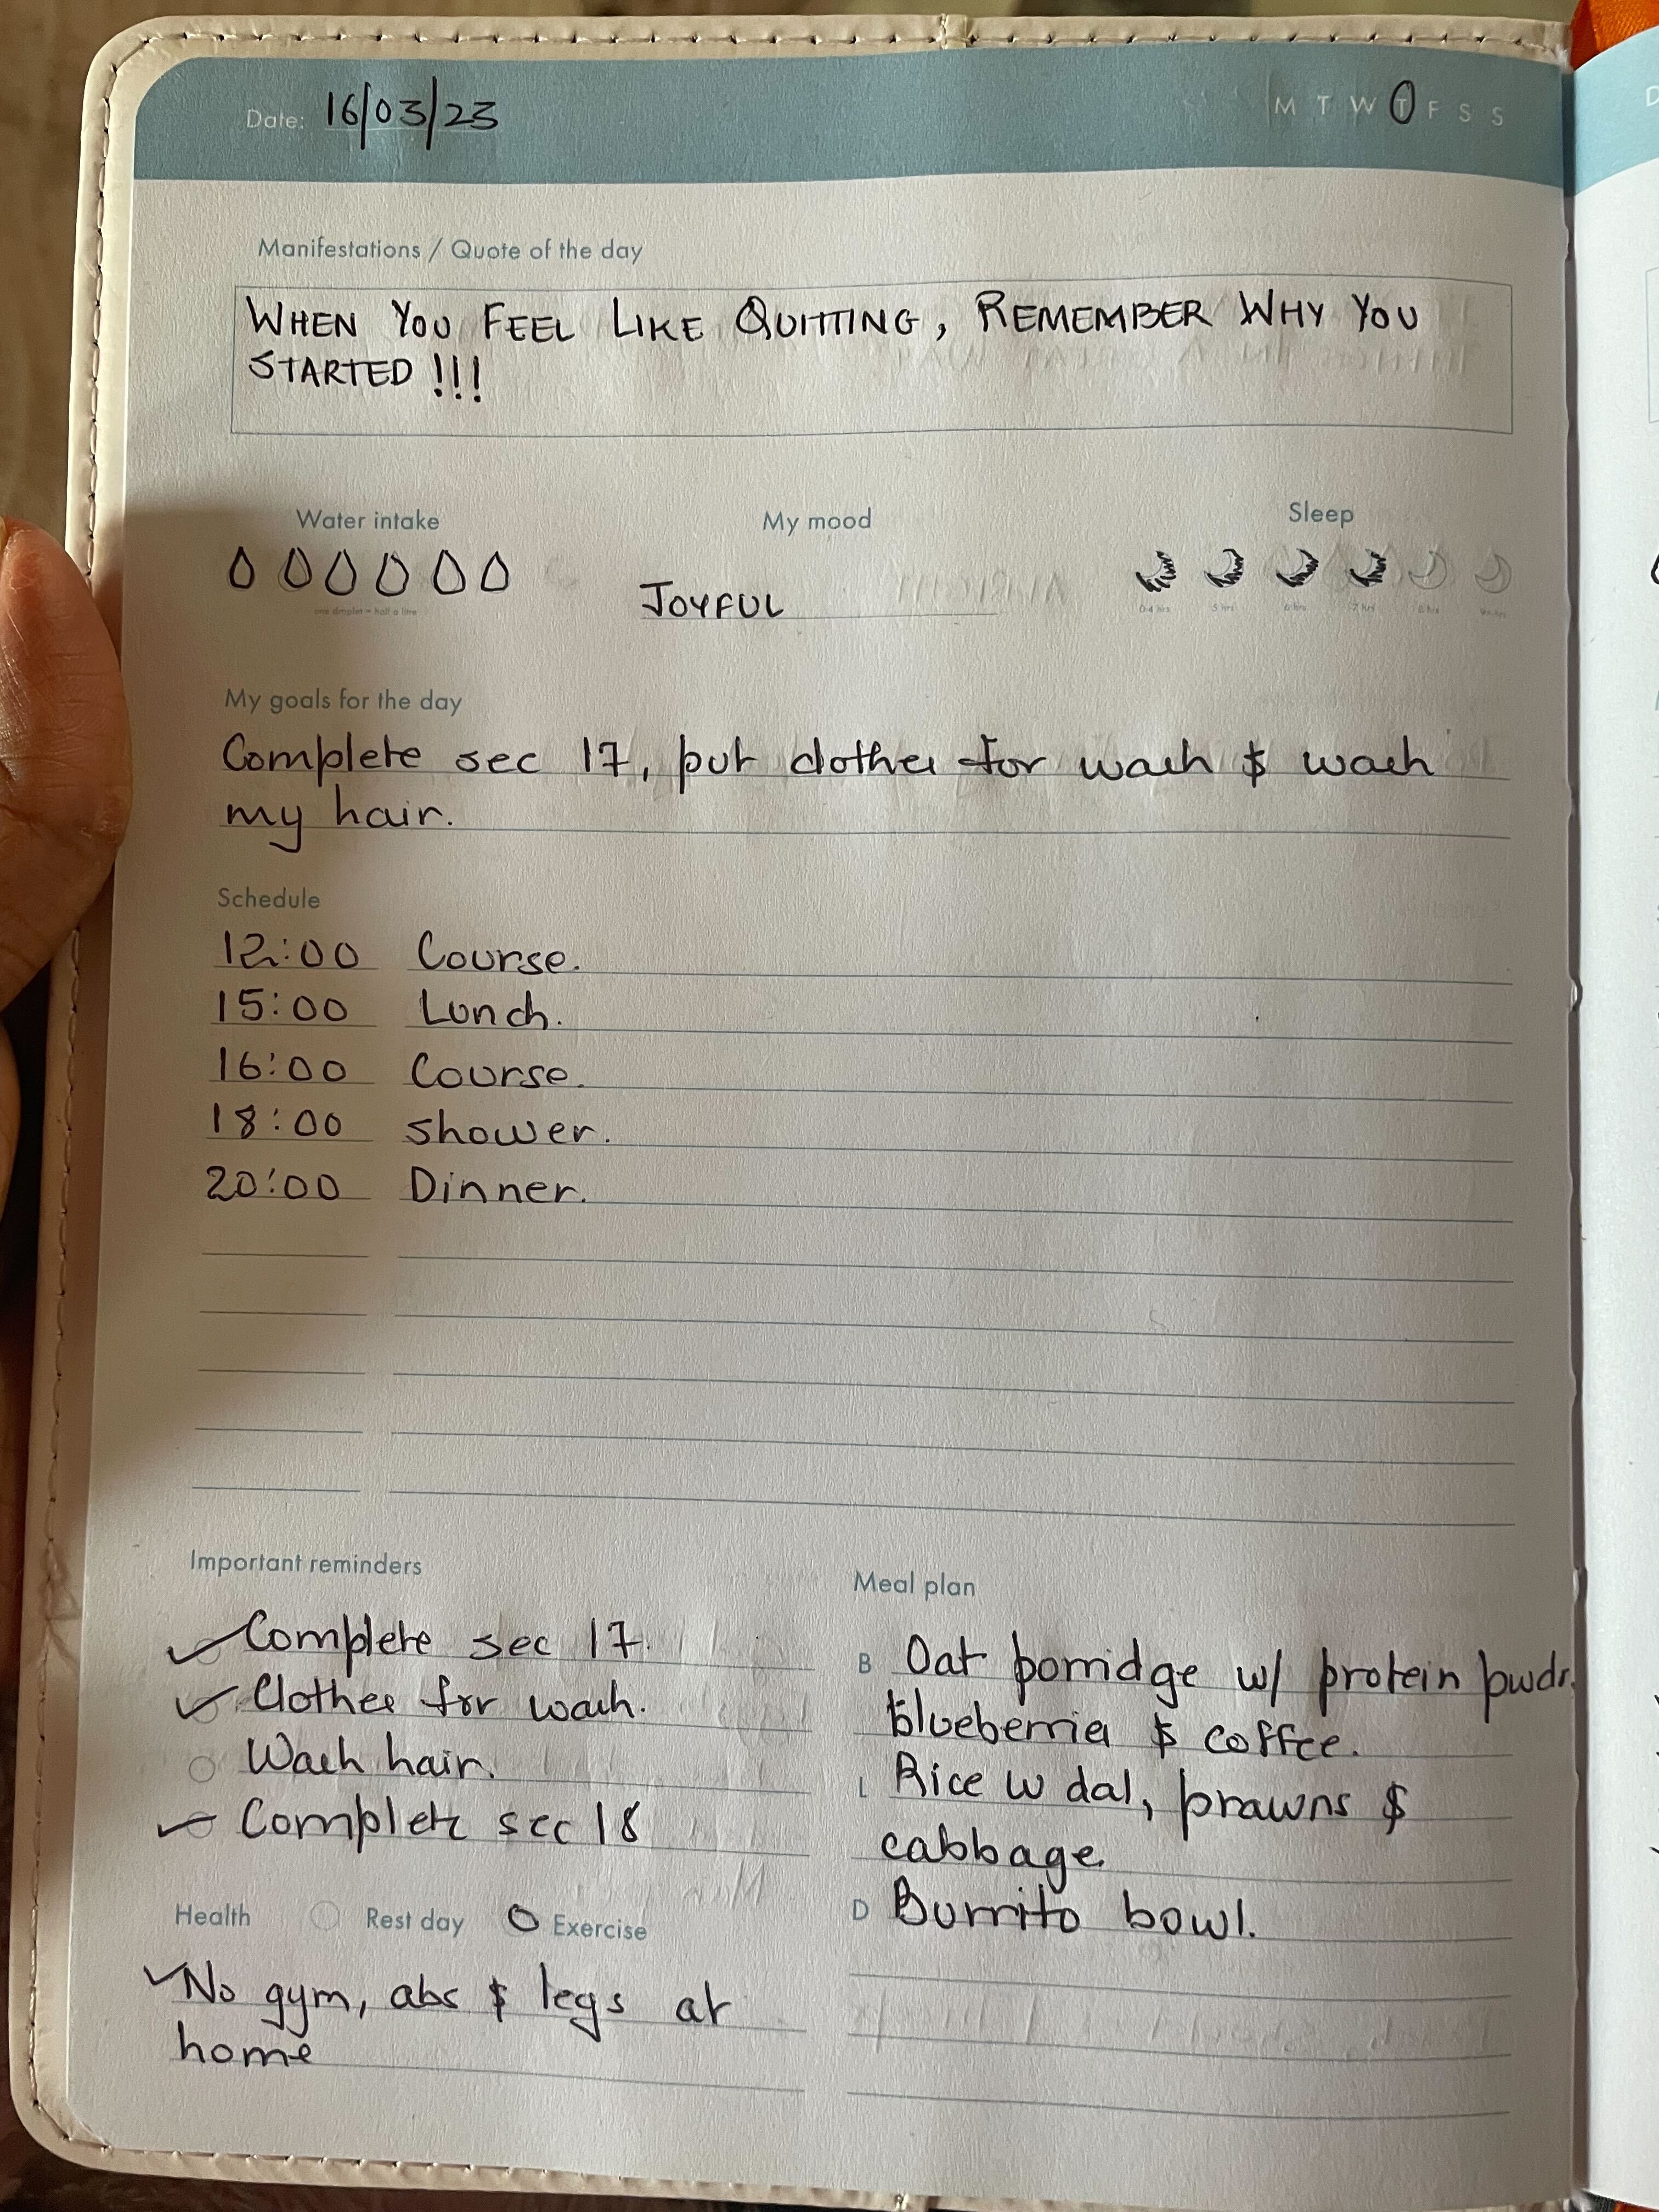 Date: 16/03/23
M T W T F S S
Manifestations / Quote of the day
WHEN YOU FEEL LIKE QUITTING, REMEMBER WHY YOU
STARTED!!!
Water intake
one droplet = half a litre
My mood
JOYFUL
Sleep
0-4 hrs 5 hrs 6 hrs 7 hrs 8 hrs
My goals for the day
Complete sec 17, put clothes for wash & wash
my hair.
Schedule
12:00 Course.
15:00 Lunch.
16:00 Course.
18:00 shower.
20:00 Dinner.
Important reminders
Complete sec 17.
Clothes for wash.
Wash hair.
Complete sec 18
Health Rest day Exercise
No gym, abs & legs at
home
Meal plan
B Oat porridge w/ protein pwdr,
blueberries & coffee.
L Rice w dal, prawns &
cabbage.
D Burrito bowl.